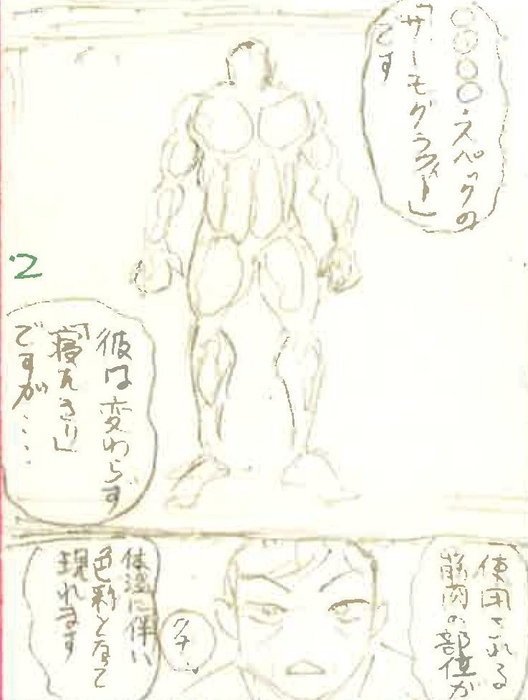 ○○○○・スペックの
「サーモグラフィー」
です
2
彼は変わらず
「寝たきり」
ですが‥‥
使用される
筋肉の部位が
クチ…
体温に伴い
色彩となって
現れます